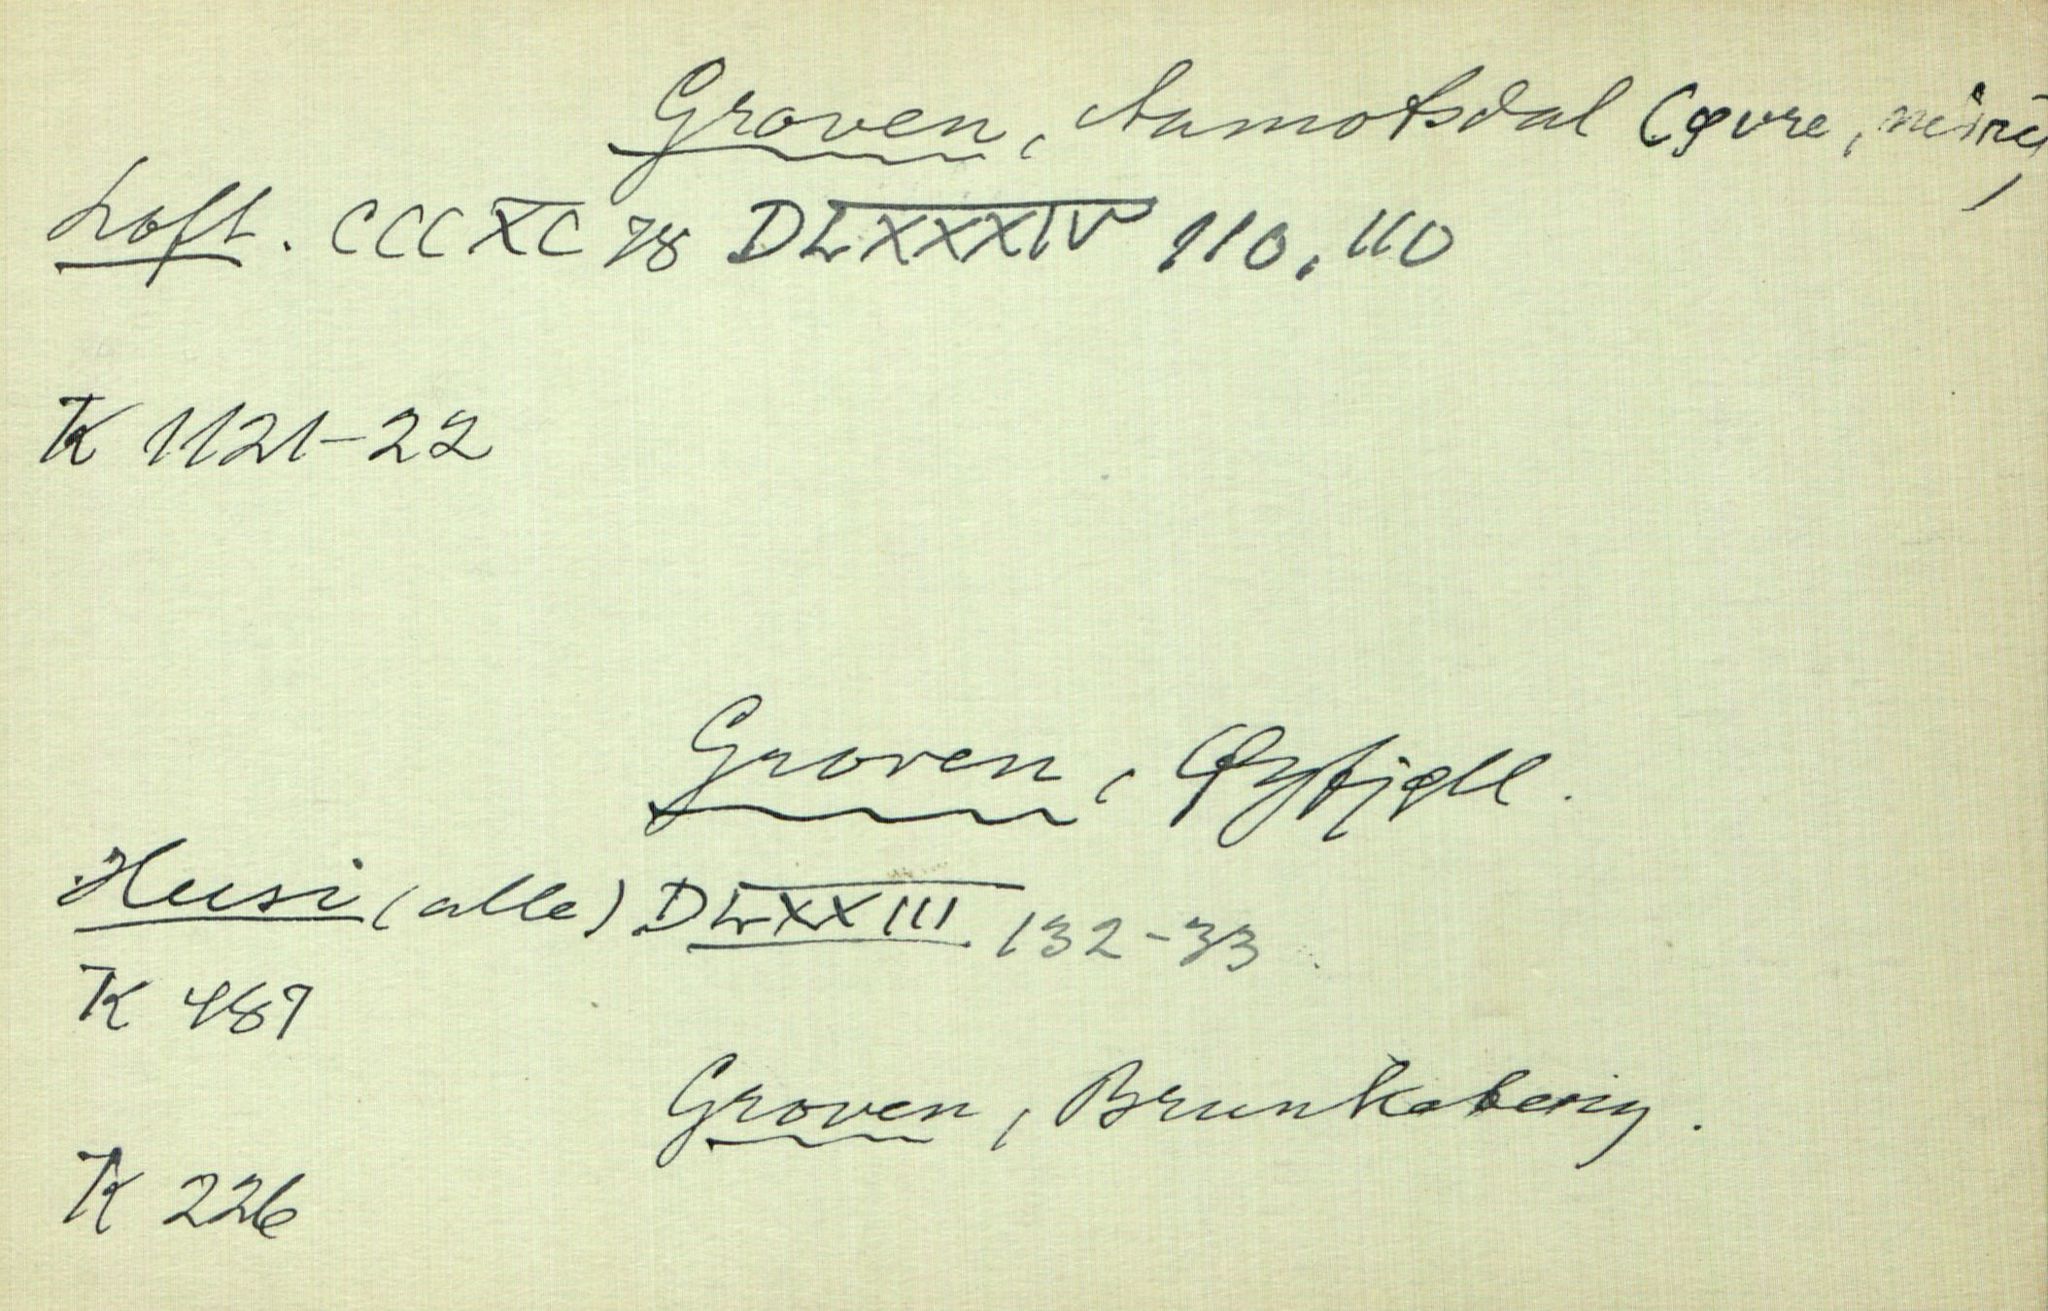 Groven, Aamotsdal (øvre, nedre)
Loft. CCCXC 78 DLXXXIV 110, 110
K 1121-22
Groven, Øyfjell.
Husi (alle) DLXXIII 132-33
K 489
Groven, Brunkeberg.
K 226